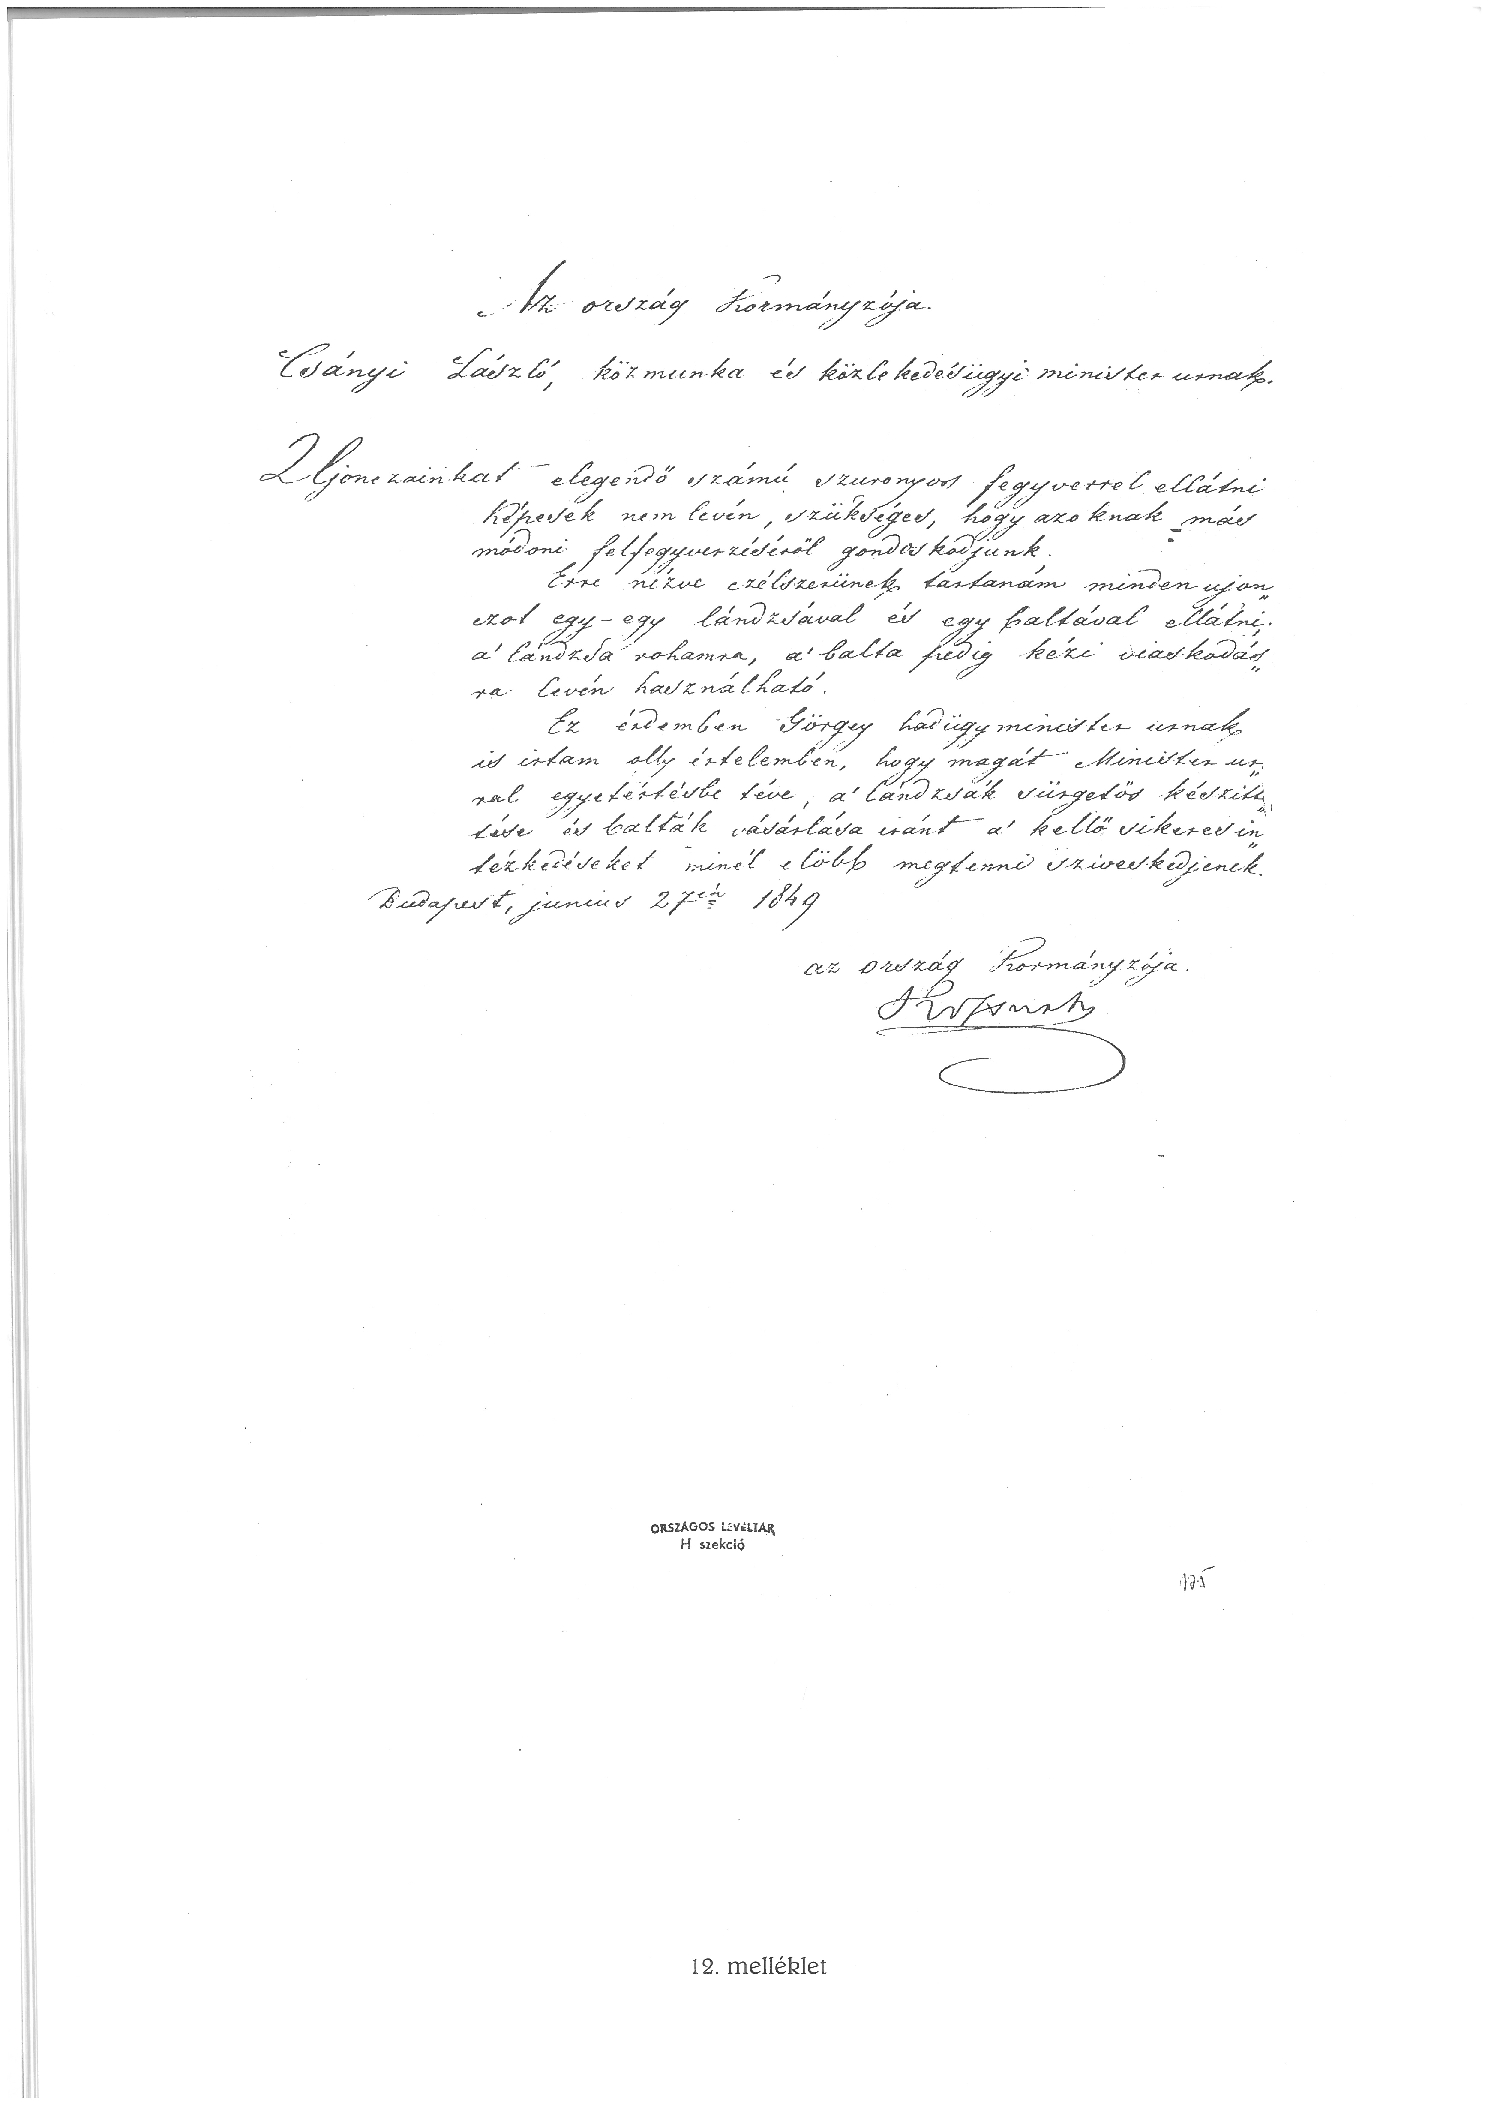 Az ország Kormányzója.
Csányi László, közmunka és közlekedésügyi minister urnak.
Ujonczainkat elegendő számú szuronyos fegyverrel ellátni
képesek nem levén, szükséges, hogy azoknak más
módoni felfegyverzéséről gondoskodjunk.
Erre nézve czélszerünek tartanám minden ujon„
czot egy-egy lándzsával és egy baltával ellátni;
a' lándzsa rohamra, a' balta pedig kézi viaskodás„
ra levén használható.
Ez érdemben Görgey hadügyminister urnak
is irtam olly értelemben, hogy magát Minister ur„
ral egyetértésbe téve, a' lándzsák sürgetős készitt„
tése és balták vásárlása iránt a' kellő sikeres in„
tézkedéseket minél előbb megtenni sziveskedjenek.
Budapest, junius 27én 1849
az ország Kormányzója.
Kossuth
ORSZÁGOS LEVÉLTÁR
H szekció
12. melléklet